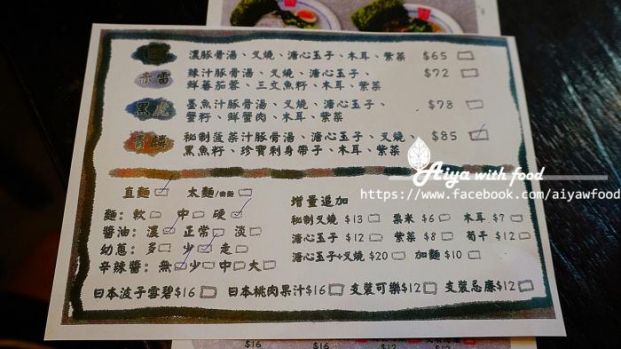 濃豚骨湯、叉燒、溏心玉子、木耳、紫菜 $65
赤雷 辣汁豚骨湯、叉燒、溏心玉子、 $72
鮮蕃茄蓉、三文魚籽、木耳、紫菜
墨魚汁豚骨湯、叉燒、溏心玉子、 $78
蟹籽、鮮蟹肉、木耳、紫菜
秘制菠菜汁豚骨湯、溏心玉子、叉燒、 $85
黑魚籽、珍寶刺身帶子、木耳、紫菜
Aiya with food
https://www.facebook.com/aiyawfood
直麵 太麵
麵: 軟 中 硬
醬油: 濃 正常 淡
幼蔥: 多 少 走
辛辣醬: 無 少 中 大
增量追加
秘制叉燒 $13 粟米 $6 木耳 $7
溏心玉子 $12 紫菜 $8 筍干 $12
溏心玉子+叉燒 $20 加麵 $10
日本波子雪碧$16 日本桃肉果汁$16 支裝可樂$12 支裝忌廉$12
$16 $16